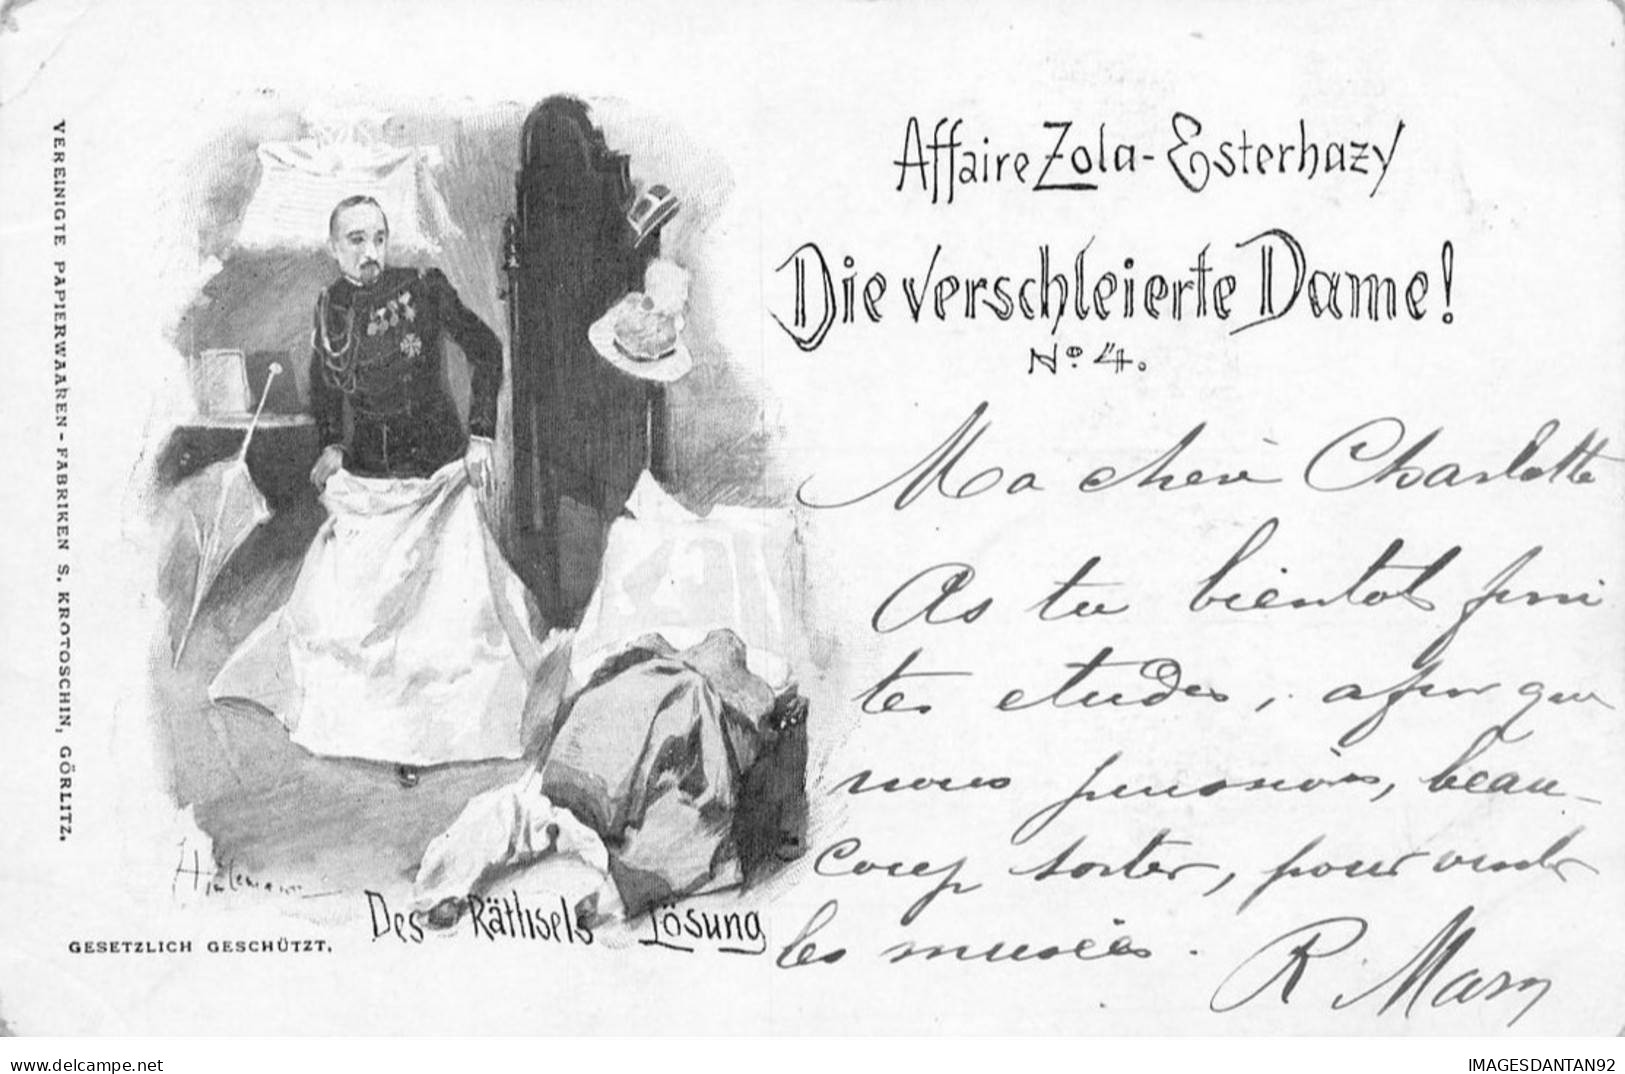 VEREINIGTE PAPIERWAAREN-FABRIKEN S. KROTOSCHIN, GÖRLITZ.
Affaire Zola-Esterhazy
Die verschleierte Dame!
No. 4.
Ma chère Charlotte
As tu bientot fini
tes etudes, afin que
nous puissions, beau-
coup sorter, pour
les musées.
R. Mary
Des Räthsels Lösung
GESETZLICH GESCHÜTZT.
delcampe.net
IMAGESDANTAN92